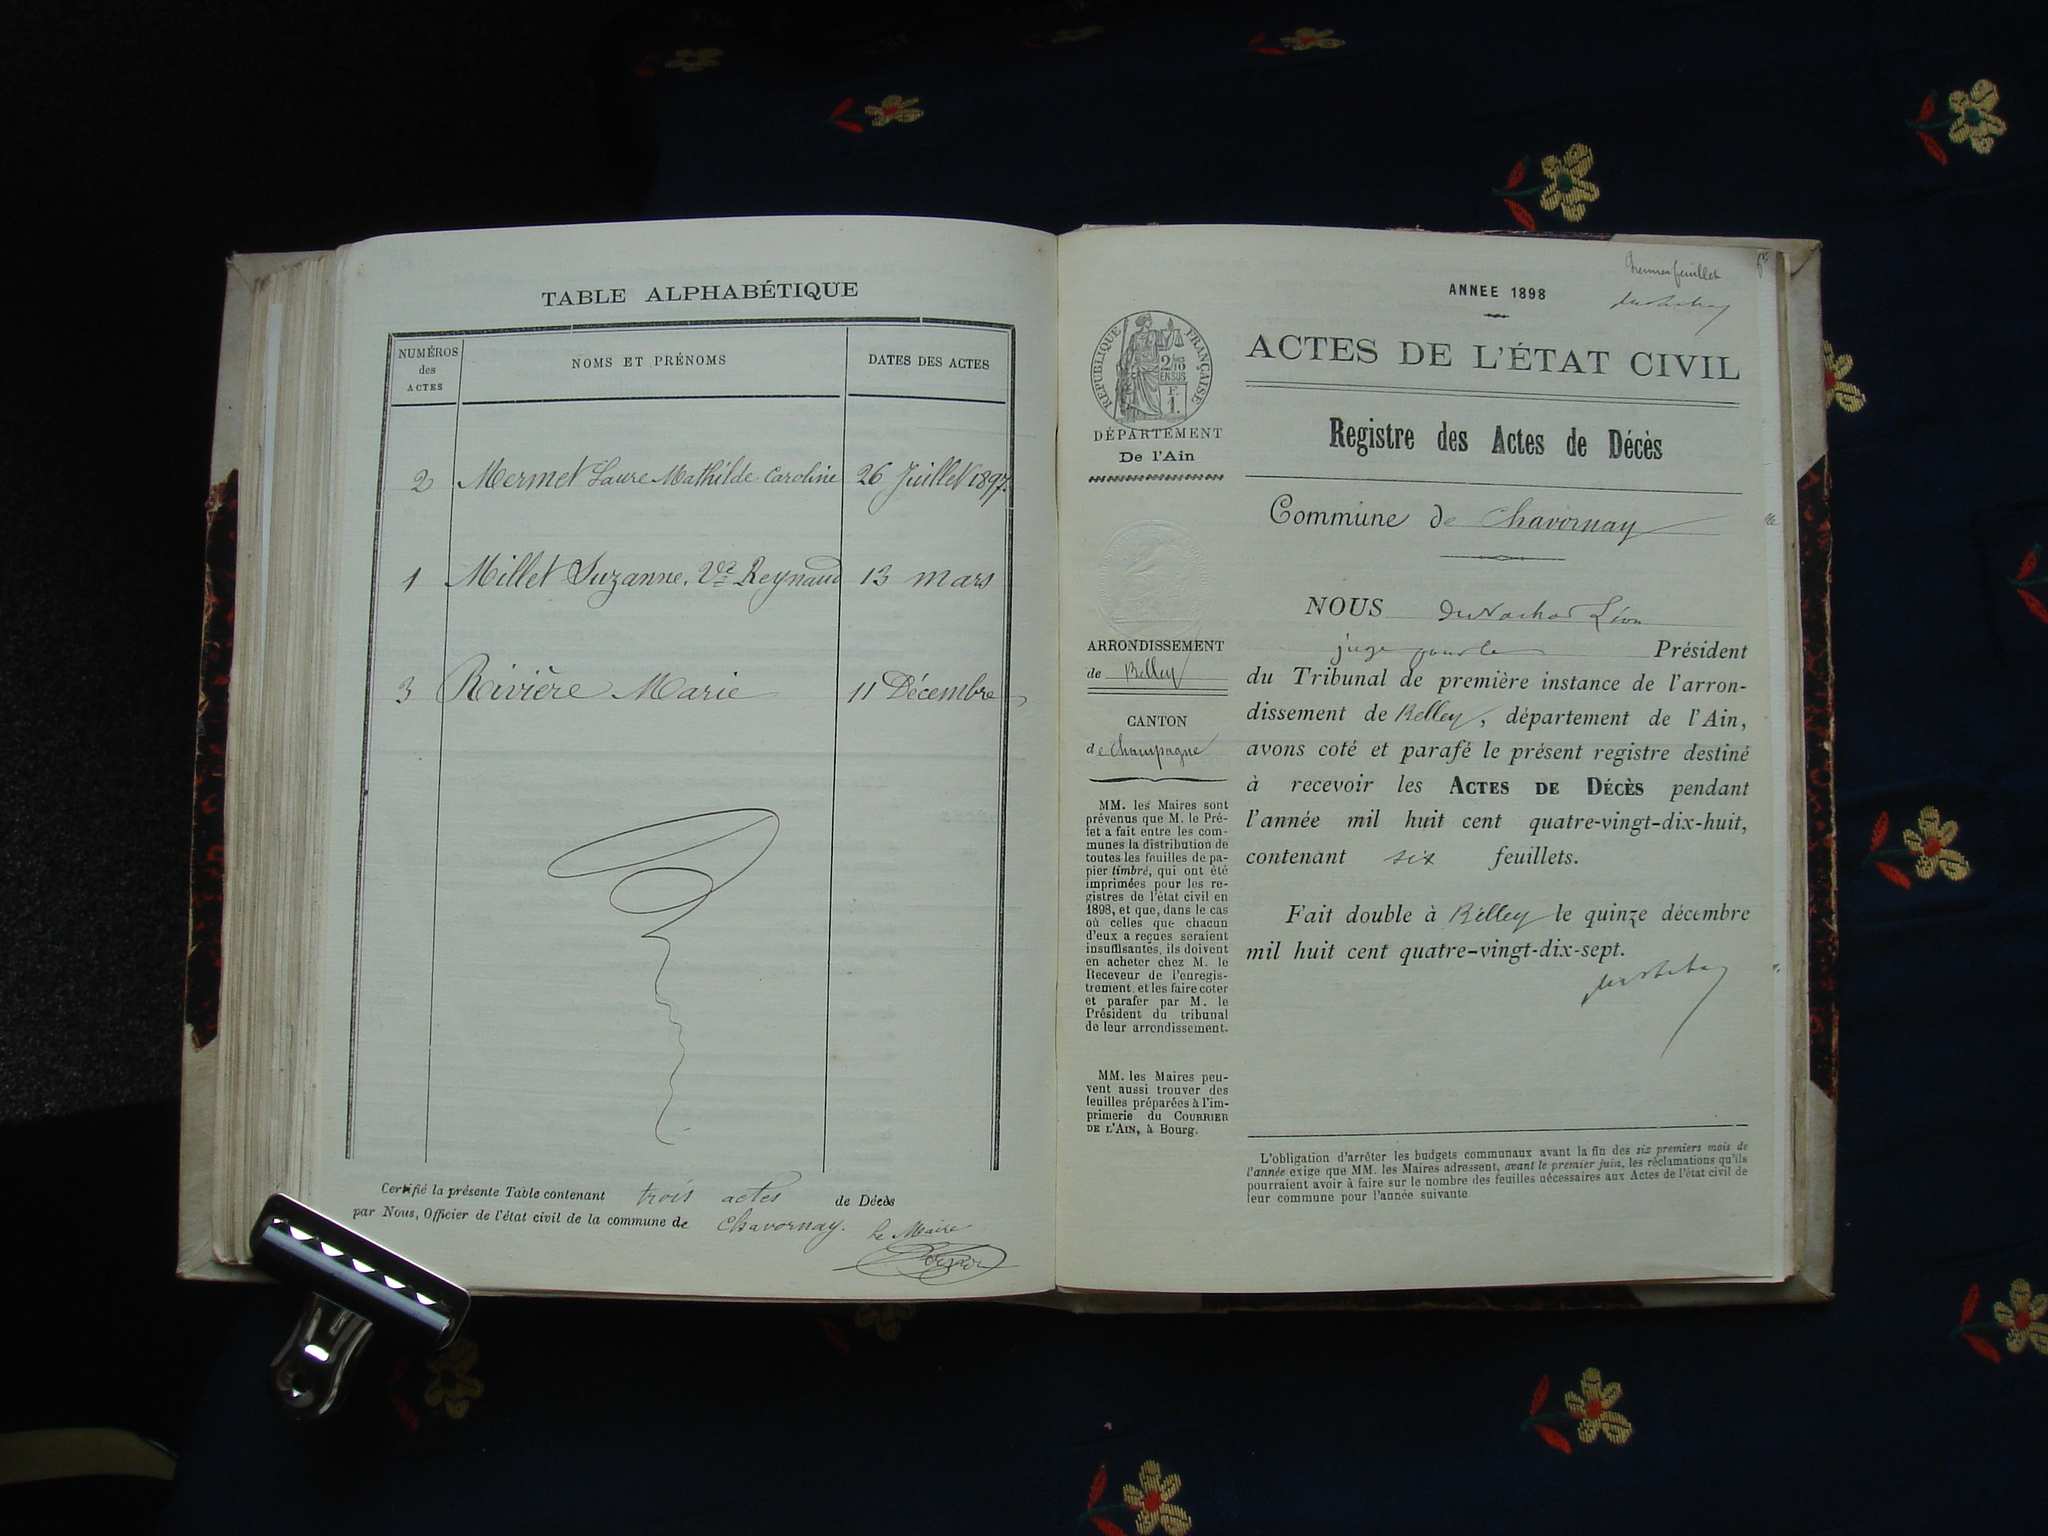 TABLE ALPHABÉTIQUE
NUMÉROS
des
ACTES
NOMS ET PRÉNOMS
DATES DES ACTES
2 Mermet Laure Mathilde Caroline 26 Juillet 1897.
1 Millet Suzanne, Vve Reynaud 13 mars
3 Rivière Marie 11 Décembre
Certifié la présente Table contenant trois actes de Décès
par Nous, Officier de l'état civil de la commune de Chavornay.
Le Maire
feuillet
ANNEE 1898
RÉPUBLIQUE FRANÇAISE
DÉPARTEMENT
De l'Ain
ARRONDISSEMENT
de Belley
CANTON
de Champagne
MM. les Maires sont
prévenus que M. le Pré-
fet a fait entre les com-
munes la distribution de
toutes les feuilles de pa-
pier timbré, qui ont été
imprimées pour les re-
gistres de l'état civil en
1898, et que, dans le cas
où celles que chacun
d'eux a reçues seraient
insuffisantes, ils doivent
en acheter chez M. le
Receveur de l'enregis-
trement et les faire coter
et parafer par M. le
Président du tribunal
de leur arrondissement.
MM. les Maires peu-
vent aussi trouver des
feuilles préparées à l'im-
primerie du COURRIER
DE L'AIN, à Bourg.
ACTES DE L'ÉTAT CIVIL
Registre des Actes de Décès
Commune de Chavornay
NOUS Léon
juge pour le Président
du Tribunal de première instance de l'arron-
dissement de Belley, département de l'Ain,
avons coté et parafé le présent registre destiné
à recevoir les ACTES DE DÉCÈS pendant
l'année mil huit cent quatre-vingt-dix-huit,
contenant six feuillets.
Fait double à Belley le quinze décembre
mil huit cent quatre-vingt-dix-sept.
L'obligation d'arrêter les budgets communaux avant la fin des six premiers mois de
l'année exige que MM. les Maires adressent, avant le premier juin, les réclamations qu'ils
pourraient avoir à faire sur le nombre des feuilles nécessaires aux Actes de l'état civil de
leur commune pour l'année suivante